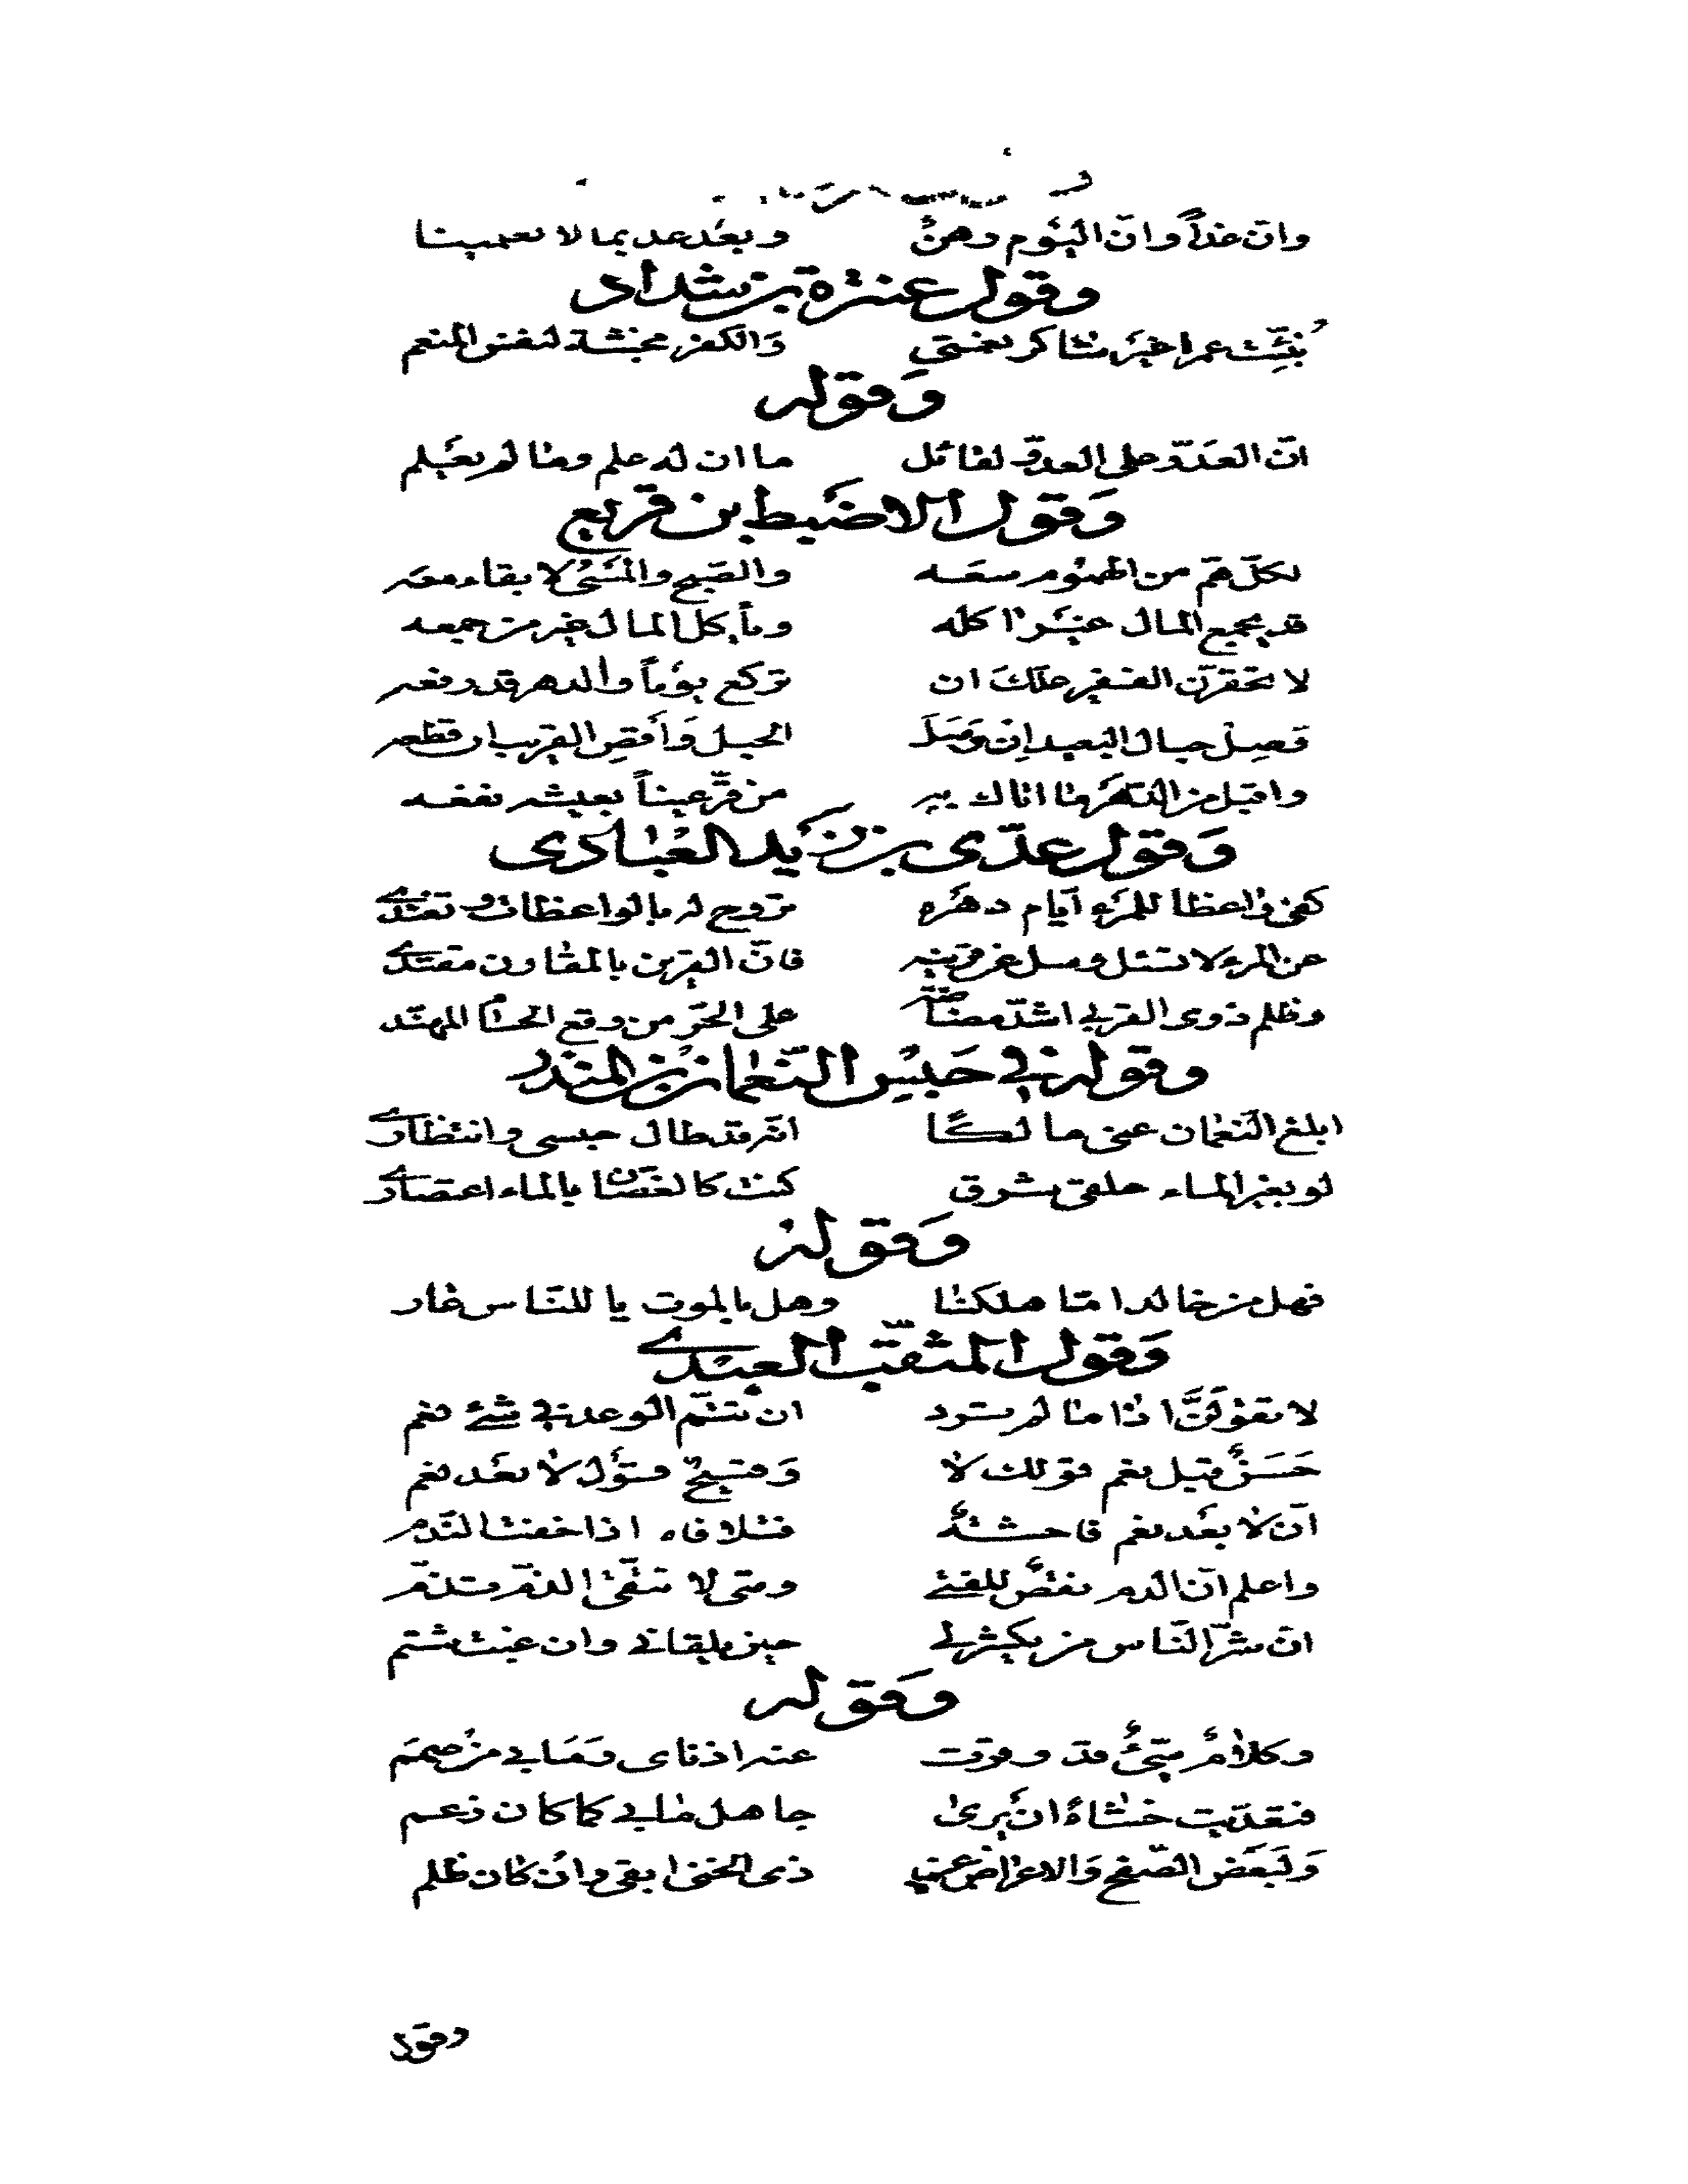 وانّ غداً وانّ اليَوم رَهنٌ وبعْد غد بما لا تعلمينا
وقول عنترة بن شداد
نُبّئت عمرا غيرَ شاكر نعمتي وَالكفر مخبثة لنفس المنعم
وَقوله
انّ العَدّو على العدوّ لقائل ما ان له علم وما لم يعْلم
وَقول الاضَبط بن قريع
لكلّ همّ من الهمُوم سعَه والصّبح والمسَىُ لا بقاء معَه
قد يجمع المال غيْر اكله ويأكل المال غير من جمعه
لا تحقرّن الفقير علّكَ ان تركع يوْماً والدهر قد رفعه
فصِلْ حبال البعيد اِن وَصَلَ الحبل وَأقصِ القريب ان قطعه
واقبل من الدّهرَ ما اتاك به من قرّ عيناً بعيشه نفعه
وَقول عدّى بن زَيد العبَادى
كفى وْاعظا للمرَءِ ايّام دهرَهِ تروح له بالواعظات وتغتدى
عن المرءِ لا تسئل وسل عن قرينه فانّ القرين بالمقارن مقتدى
وظلم ذوى القربى اشدّ مضاضة على الحرّ من وقع الحسْام المهنّد
وقوله في حَبْسِ النّعمان بن المنذر
ابلغ النّعمان عنى مالكًا انّه قد طال حبسى وانتظارى
لو بغير الماء حلقى شرق كنت كالغصّان بالماء اعتصارى
وَقوله
فهل من خالد امّا هلكنا وهل بالموت يا للنّاس عار
وَقول المثقّب العبْدى
لا تقوْلَنَّ اذا ما لم ترد ان تتمّ الوعد في شئ نعم
حَسَنٌ قبل نعم قولك لا وَقبيحٌ قوْل لا بعَد نعم
انّ لا بعَد نعم فاحشةٌ فبلا فاء اذا خفت النّدم
واعلم انّ الذم نقصٌ للفتى ومتى لا تتّقى الذمّ تذمّ
انّ شرّ النّاس من يكشر لى حين يلقانى وان غبت شتم
وَقوله
وكلامٌ سّيئٌ قد وقرت عنه اذناى وَمَا بي من صممَ
فتعدّيت خشاةً انْ يرى جاهل مابى كما كان زعم
وَلَبعَض الصّفح وَالاعراض عن ذى الخنى ابقى وانْ كان ظلم
وقول